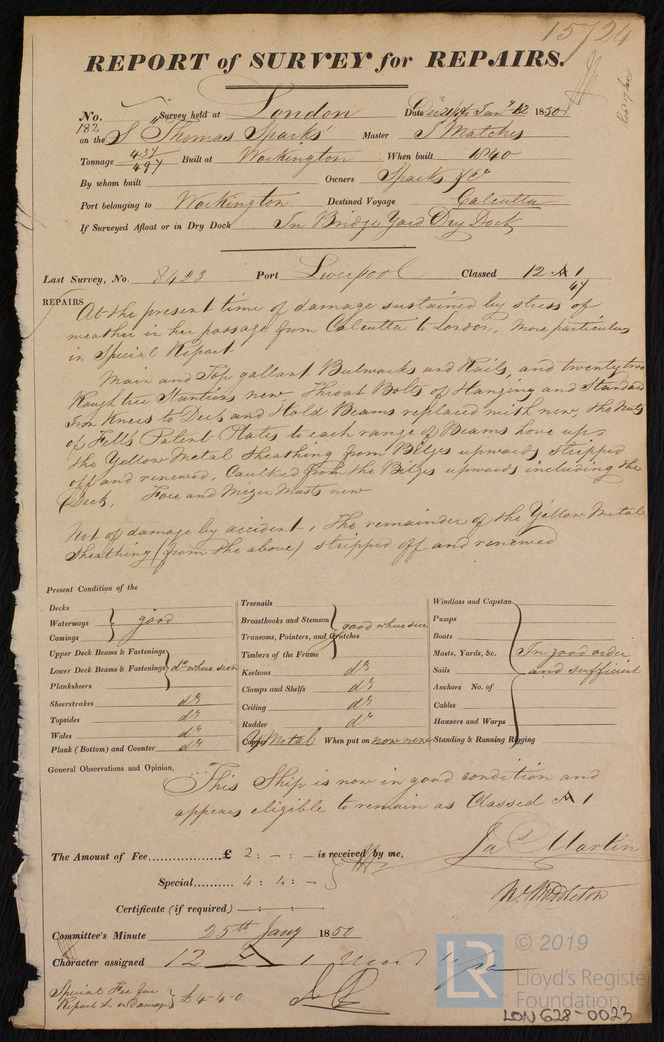 15724
REPORT of SURVEY for REPAIRS.
No. 182 Survey held at London Date Jany 12 1850
on the S Thomas Sparks Master T Matches
Tonnage 437 497 Built at Workington When built 1840
By whom built Owners Sparks & Co
Port belonging to Workington Destined Voyage Calcutta
If Surveyed Afloat or in Dry Dock In Bridge Yard Dry Dock
Last Survey, No. 8423 Port Liverpool Classed 12 A 1
47
REPAIRS At the present time of damage sustained by stress of
weather in her passage from Calcutta to London, More particulars
in Special Report
Main and Top gallant Bulwarks and Rails, and twenty two
Rough tree Stantions new, Throat Bolts of Hanging and Standard
Iron Knees to Deck and Hold Beams replaced with new, the Nuts
of Fell's Patent Plates to each range of Beams hove up,
the Yellow Metal Sheathing from Bilges upwards stripped
off and renewed, Caulked from the Bilges upwards including the
Deck, Fore and Mizen Masts new
Not of damage by accident, The remainder of the Yellow Metal
Sheathing (from the above) stripped off and renewed
Present Condition of the
Decks
Waterways good
Comings
Upper Deck Beams & Fastenings
Lower Deck Beams & Fastenings do where seen
Planksheers
Sheerstrakes do
Topsides do
Wales do
Plank (Bottom) and Counter do
Treenails
Breasthooks and Stemson good where seen
Transoms, Pointers, and Crutches
Timbers of the Frame
Keelsons do
Clamps and Shelfs do
Ceiling do
Rudder do
Copper Y Metal When put on now new
Windlass and Capstan
Pumps
Boats
Masts, Yards, &c. In good order
Sails and sufficient
Anchors No. of
Cables
Hawsers and Warps
Standing & Running Rigging
General Observations and Opinion,
This Ship is now in good condition and
appears eligible to remain as Classed A 1
The Amount of Fee £ 2 : - : - is received by me,
Jas Martin
Special 4 : 4 : -
W. Middleton
Certificate (if required) - : - : -
Committee's Minute 25th Jany 1850
Character assigned 12 A 1
Special Fee for
Report on Damage } £4-4-0
LR
© 2019
Lloyd's Register
Foundation
LON 628-0023